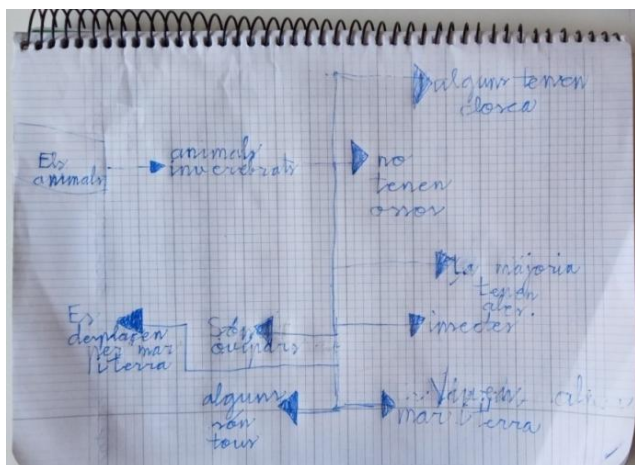 alguns tenen
closca
Els
animals
animals
invertebrats
no
tenen
ossos
La majoria
tenen
ales.
Es
desplacen
per mar
i terra
Són
ovípars
insectes
alguns
són
tous
Viuen
mar i terra